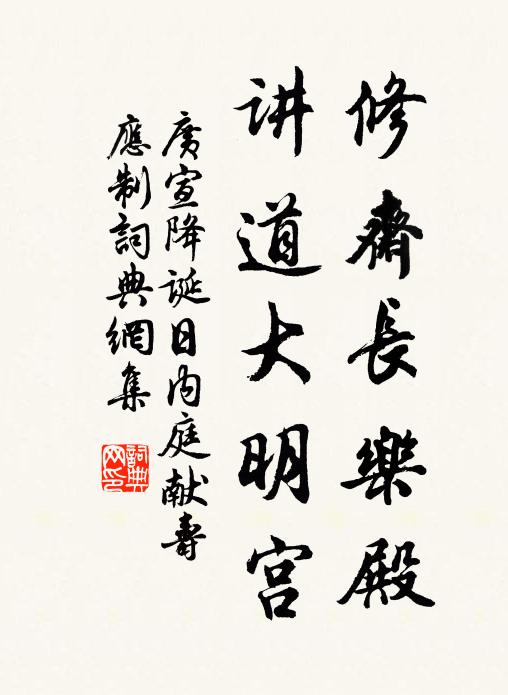 修齋長樂殿
讲道大明宫
廣宣降誕日内庭献壽
應制詞典網集
詞典
网印